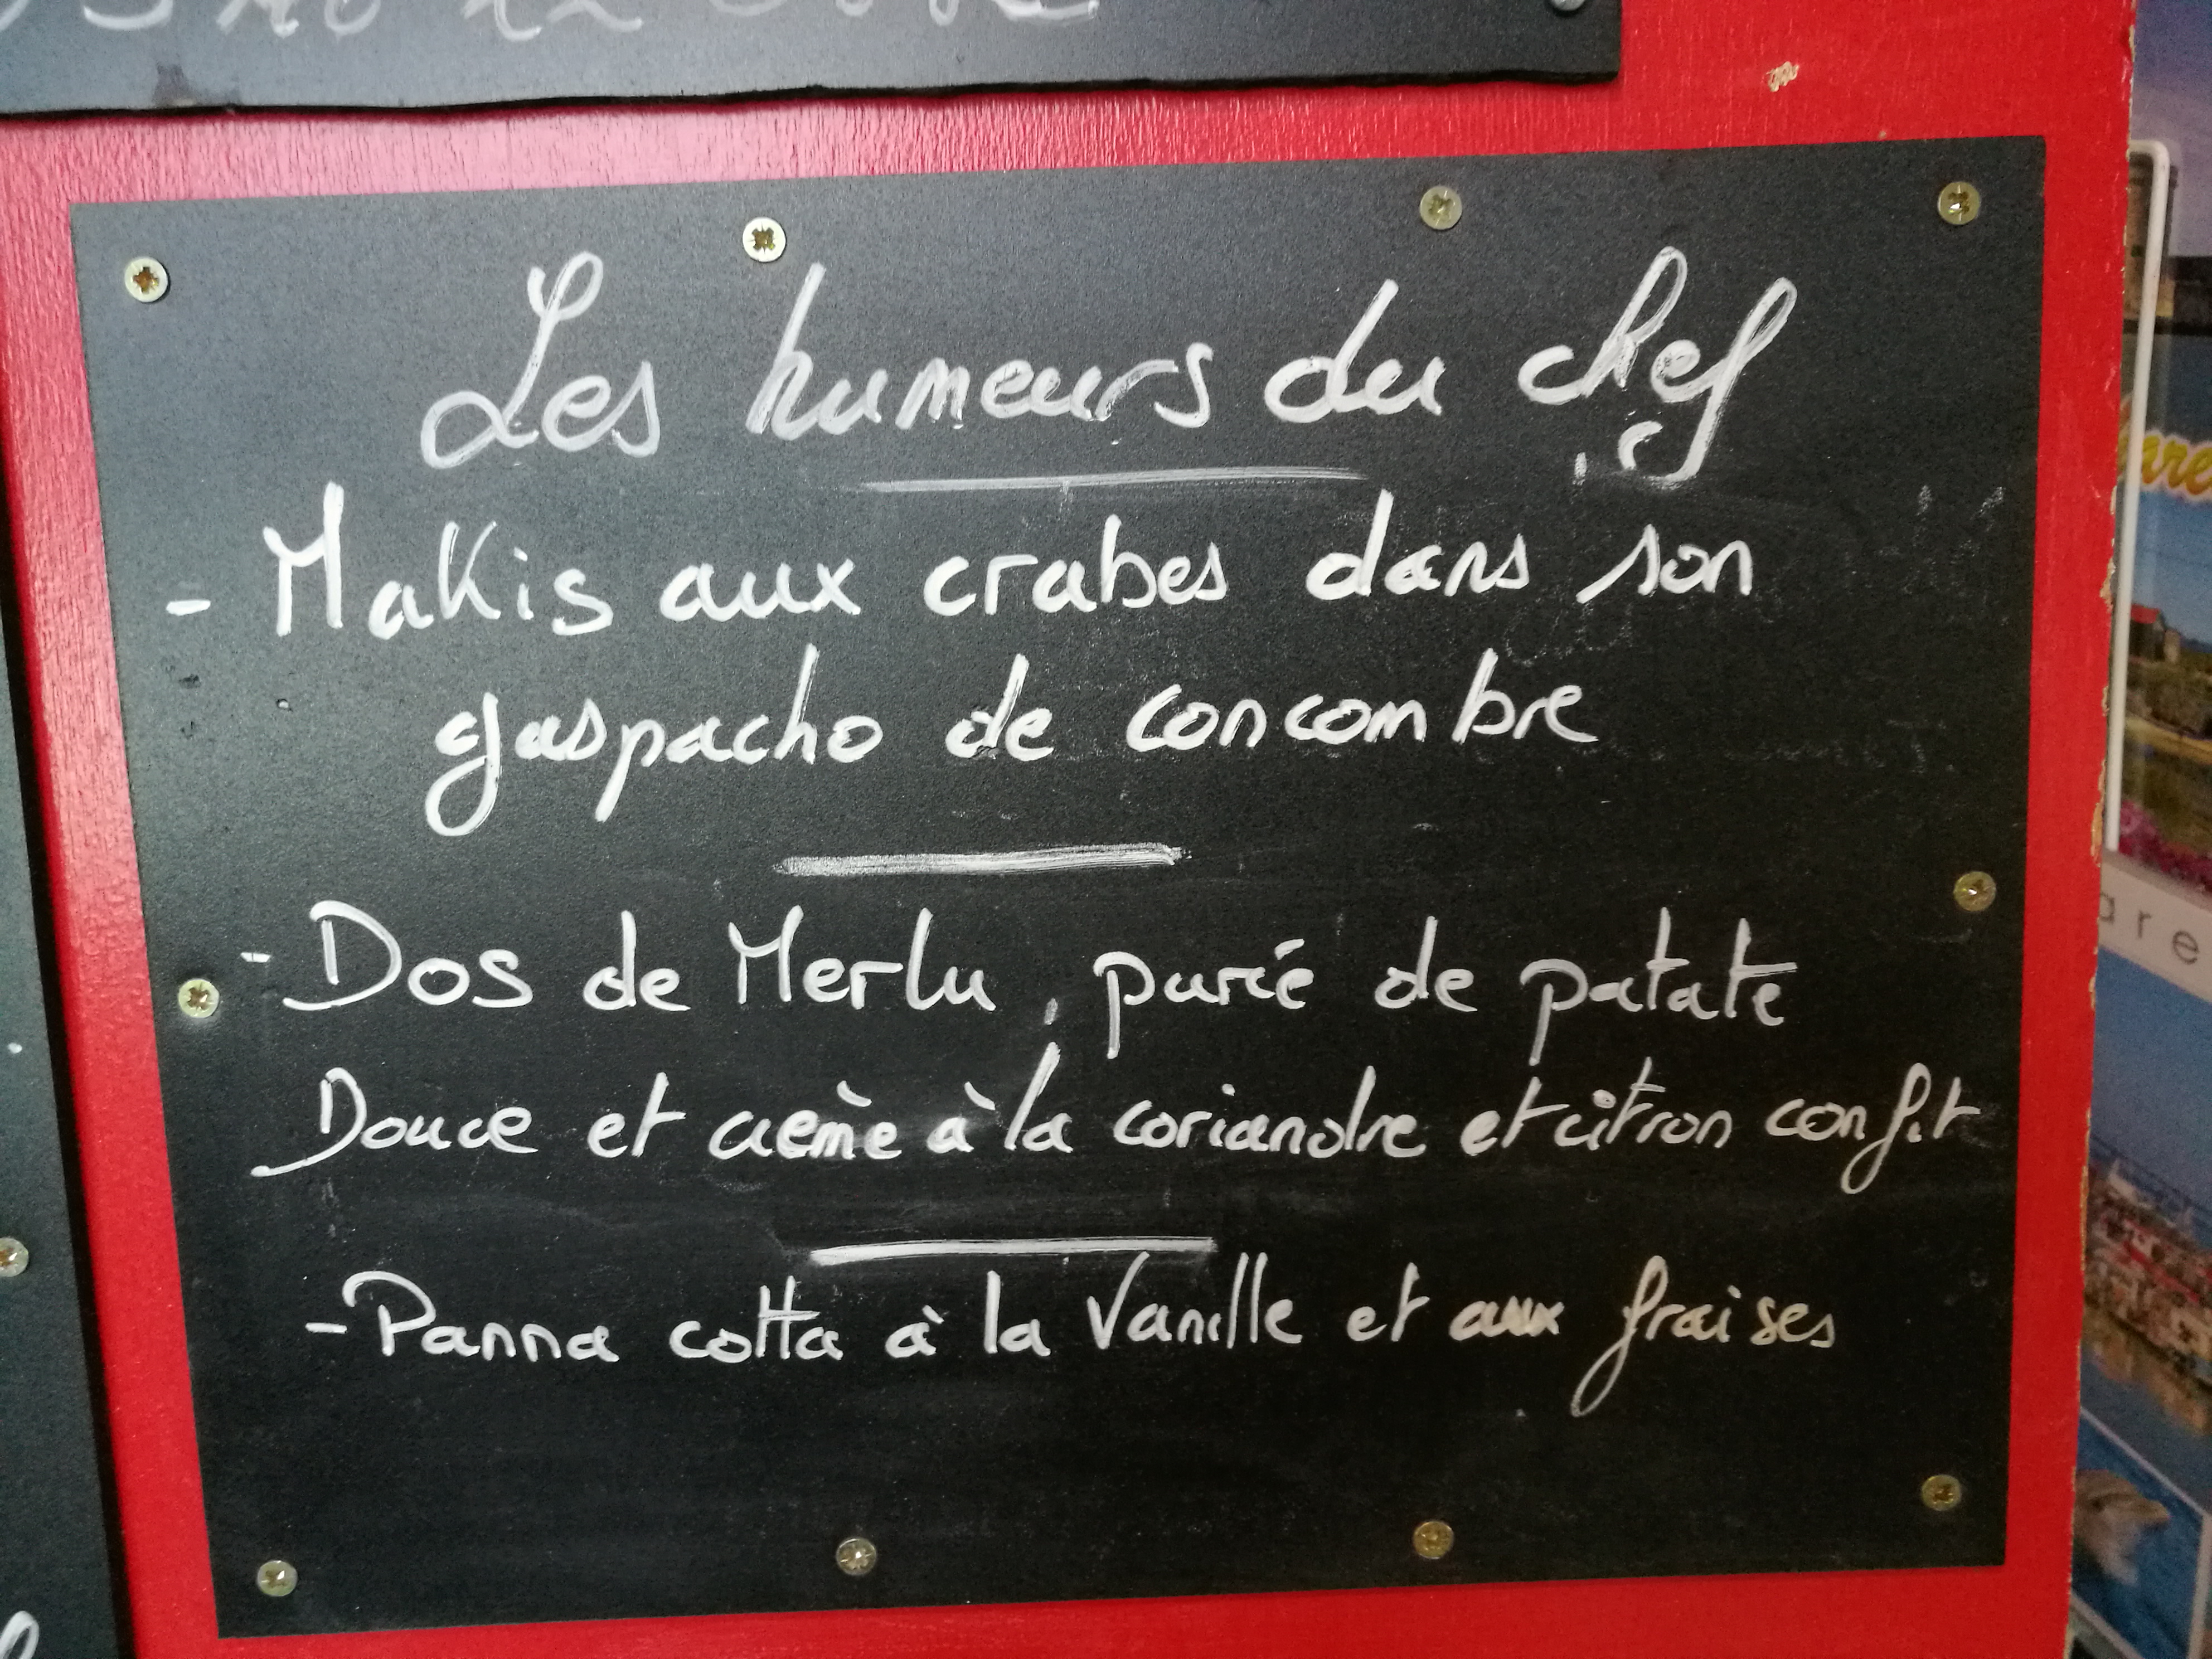 Les humeurs du chef
- Makis aux crabes dans son
gaspacho de concombre
- Dos de Merlu, purée de patate
Douce et crème à la coriandre et citron confit
- Panna cotta à la Vanille et aux fraises